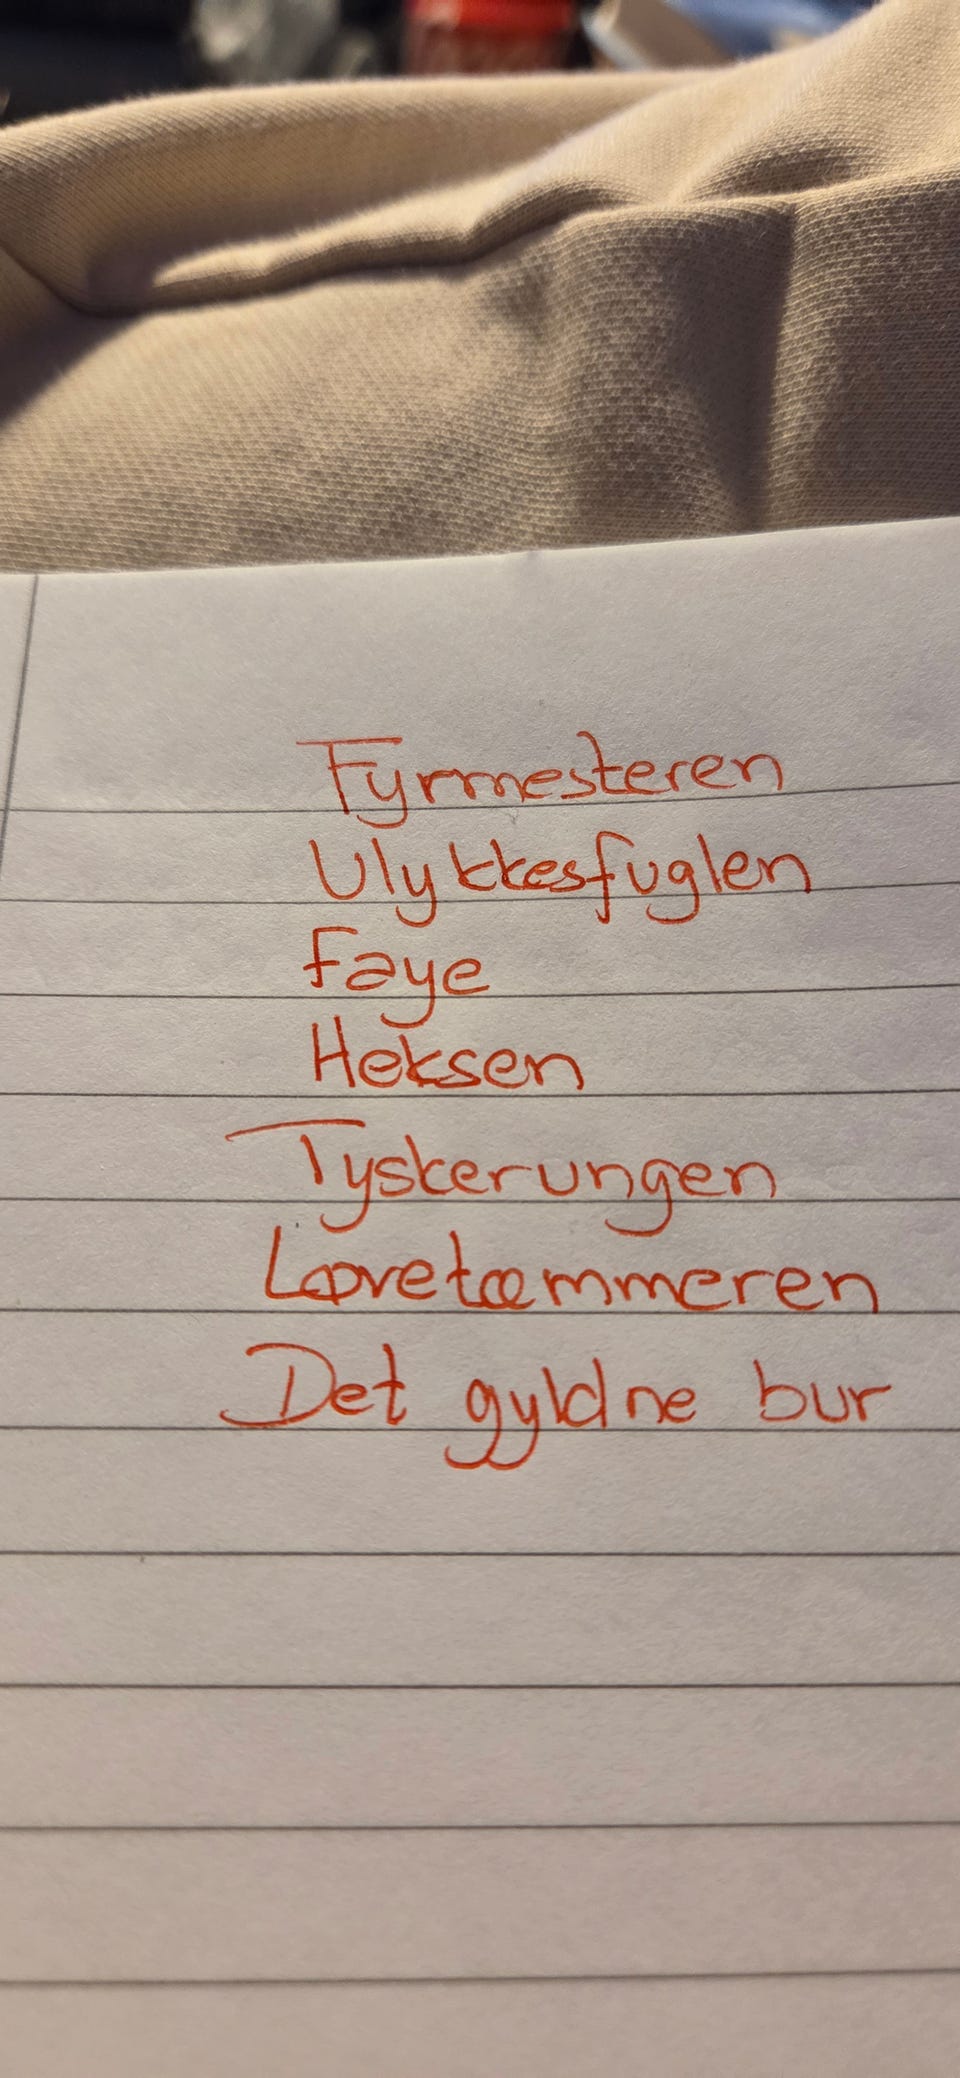 Fyrmesteren
Ulykkesfuglen
Faye
Heksen
Tyskerungen
Løvetæmmeren
Det gyldne bur